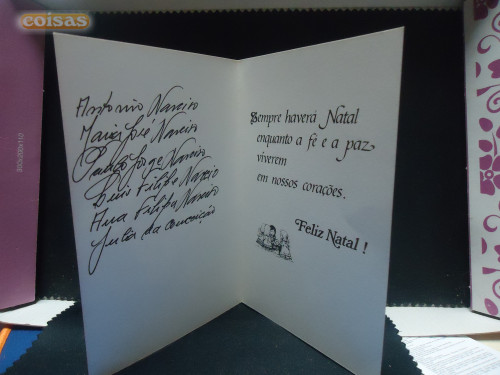 coisas
Antonio Narciso
Maria José Narciso
Paulo Jorge Narciso
Luis Filipe Narciso
Ana Filipa Narciso
Julia da Conceição
Sempre haverá Natal
enquanto a fé e a paz
viverem
em nossos corações.
Feliz Natal !